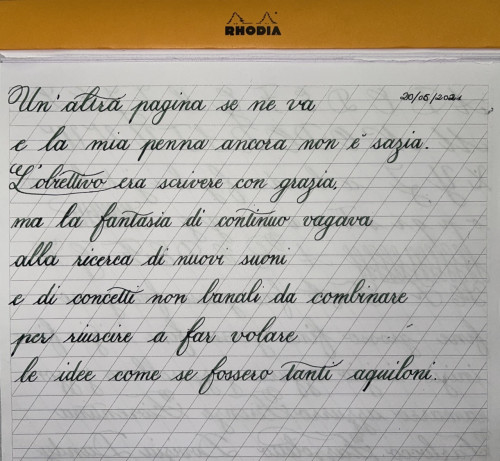 RHODIA
20/05/2021
Un'altra pagina se ne va
e la mia penna ancora non è sazia.
L'obiettivo era scrivere con grazia,
ma la fantasia di continuo vagava
alla ricerca di nuovi suoni
e di concetti non banali da combinare
per riuscire a far volare
le idee come se fossero tanti aquiloni.